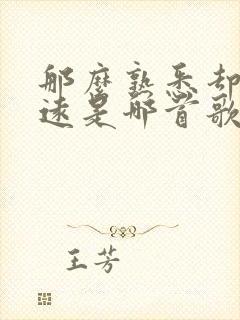 那麽熟悉却
遠是那首歌
王芳